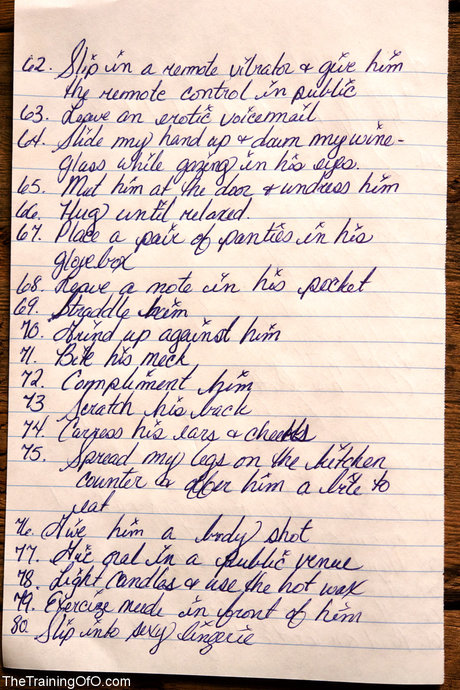 62. Slip in a remote vibrator & give him
the remote control in public
63. Leave an erotic voicemail
64. Slide my hand up & down my wine-
glass while gazing in his eyes.
65. Met him at the door & undress him
66. Hug until relaxed.
67. Place a pair of panties in his
glovebox
68. Leave a note in his pocket
69. Straddle him
70. Grind up against him
71. Bite his neck
72. Compliment him
73 Scratch his back
74. Carress his ears & cheeks
75. Spread my legs on the kitchen
counter & offer him a bite to
eat
76. Give him a body shot
77. Give oral in a public venue
78. Light candles & use the hot wax
79. Exercize nude in front of him
80. Slip into sexy lingerie
TheTrainingOfO.com